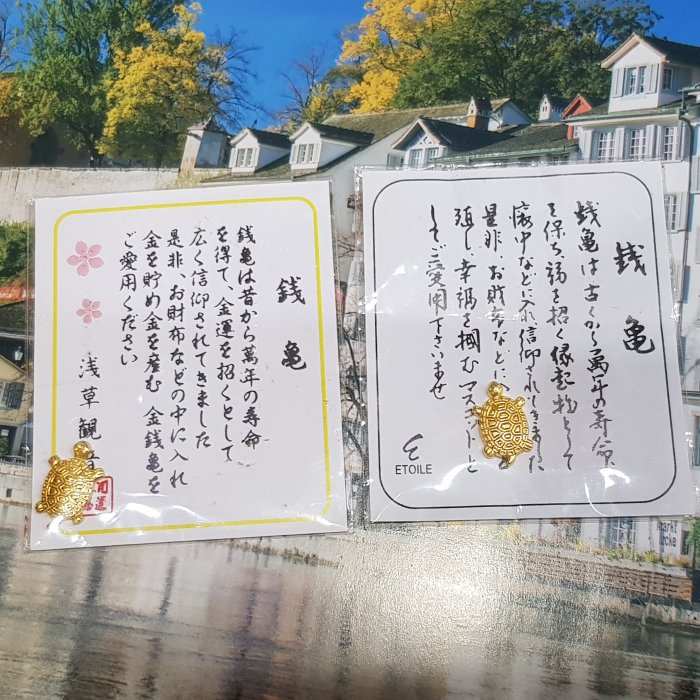 銭亀
銭亀は昔から萬年の寿命
を得て、金運を招くとして
広く信仰されてきました
是非、お財布などの中に入れ
金を貯め金を産む 金銭亀を
ご愛用ください
浅草観
開運
銭亀
銭亀は古くから萬年の寿命
を保ち福を招く縁起物として
懐中などに入れ信仰されてきました
是非、お財布などに
殖し幸福を掴むマスコットと
してご愛用下さいませ
ETOILE